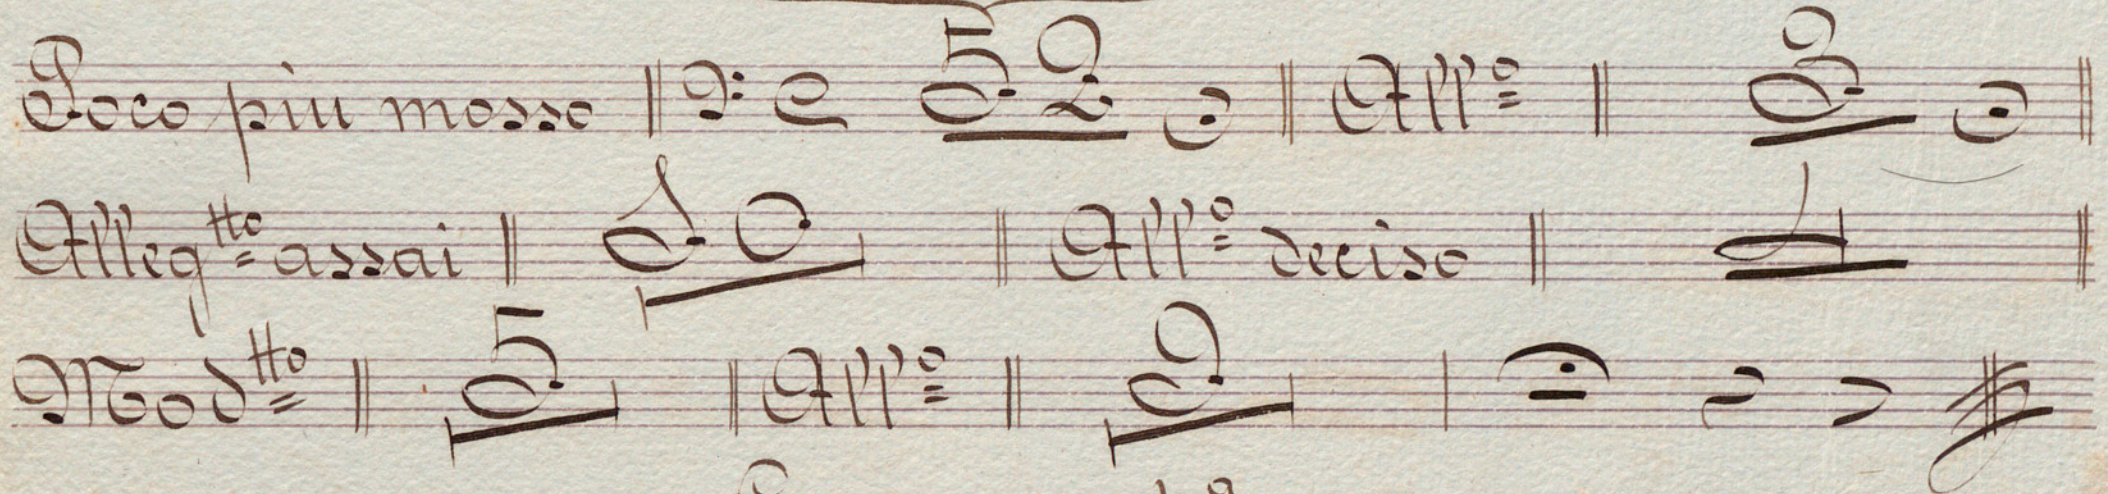 Poco piu mosso 52 All.º 3
Alleg.tto assai 50 All.º deciso 1
Mod.tto 5 All.º 9